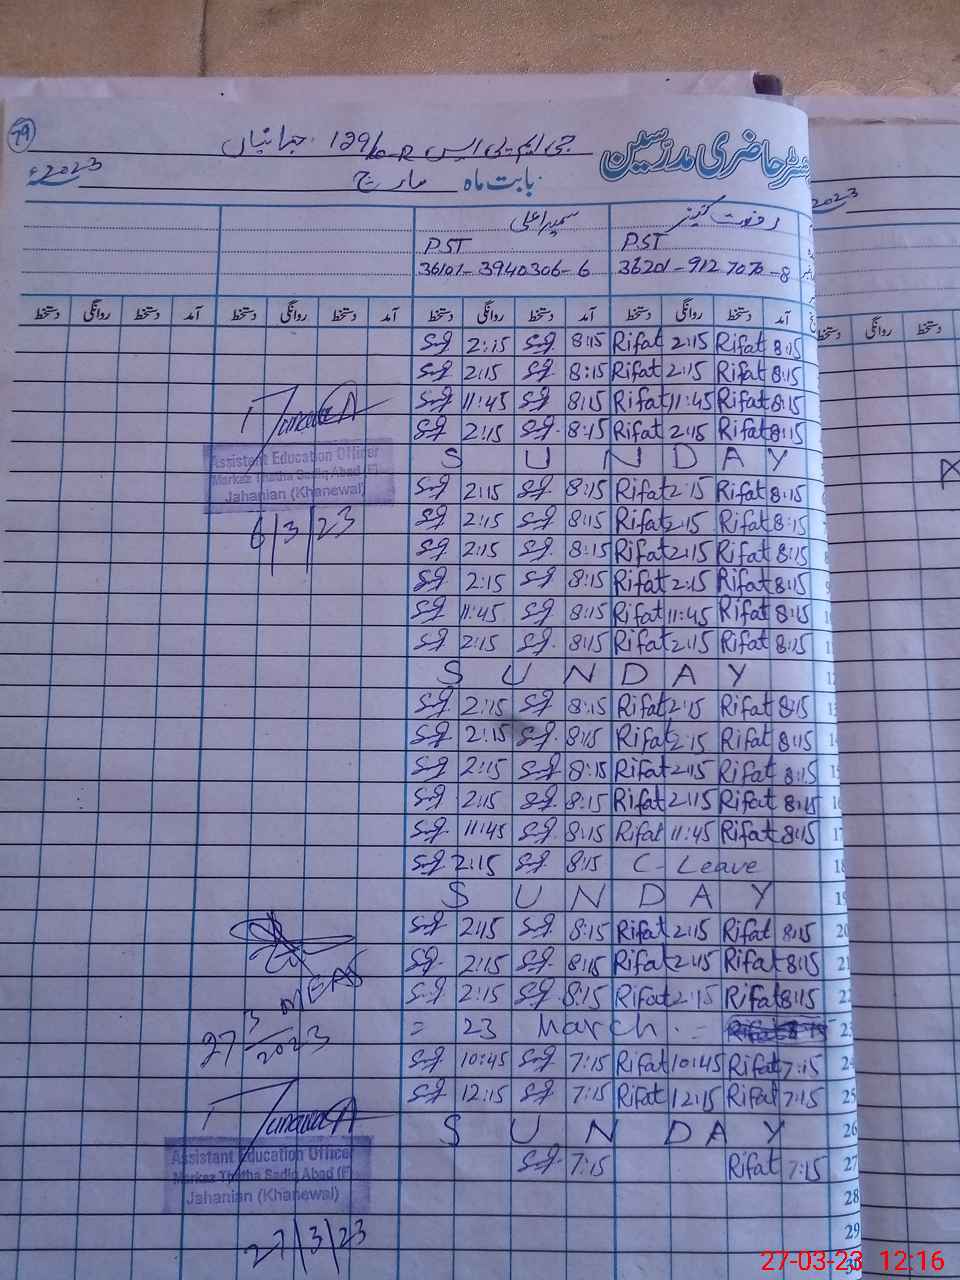 79
جی ایم پی ایس 129/10-R جہانیاں
رجسٹر حاضری مدرسین
2023ء
بابت ماہ مارچ
2023
رفعت کنیز
سمیرا علی
PST PST
36101-3940306-6 36201-9127070-8
دستخط روانگی دستخط آمد دستخط روانگی دستخط آمد دستخط روانگی دستخط آمد دستخط روانگی دستخط آمد
2:15 8:15 Rifat 2:15 Rifat 8:15
2:15 8:15 Rifat 2:15 Rifat 8:15
11:45 8:15 Rifat 11:45 Rifat 8:15
2:15 8:15 Rifat 2:15 Rifat 8:15
S U N D A Y
2:15 8:15 Rifat 2:15 Rifat 8:15
2:15 8:15 Rifat 2:15 Rifat 8:15
2:15 8:15 Rifat 2:15 Rifat 8:15
2:15 8:15 Rifat 2:15 Rifat 8:15
11:45 8:15 Rifat 11:45 Rifat 8:15
2:15 8:15 Rifat 2:15 Rifat 8:15
S U N D A Y
2:15 8:15 Rifat 2:15 Rifat 8:15
2:15 8:15 Rifat 2:15 Rifat 8:15
2:15 8:15 Rifat 2:15 Rifat 8:15
2:15 8:15 Rifat 2:15 Rifat 8:15
11:45 8:15 Rifat 11:45 Rifat 8:15
2:15 8:15 C-Leave 18
S U N D A Y 19
2:15 8:15 Rifat 2:15 Rifat 8:15 20
2:15 8:15 Rifat 2:15 Rifat 8:15 21
2:15 8:15 Rifat 2:15 Rifat 8:15 22
= 23 March - 23
10:45 7:15 Rifat 10:45 Rifat 7:15 24
12:15 7:15 Rifat 12:15 Rifat 7:15 25
S U N D A Y 26
7:15 Rifat 7:15 27
28
29
Assistant Education Officer
Markaz Thatha Sadiq Abad (F)
Jahanian (Khanewal)
6/3/23
MEAS
27 3/2023
Assistant Education Officer
Markaz Thatha Sadiq Abad (F)
Jahanian (Khanewal)
27/3/23
دستخط روانگی دستخط
27-03-23 12:16